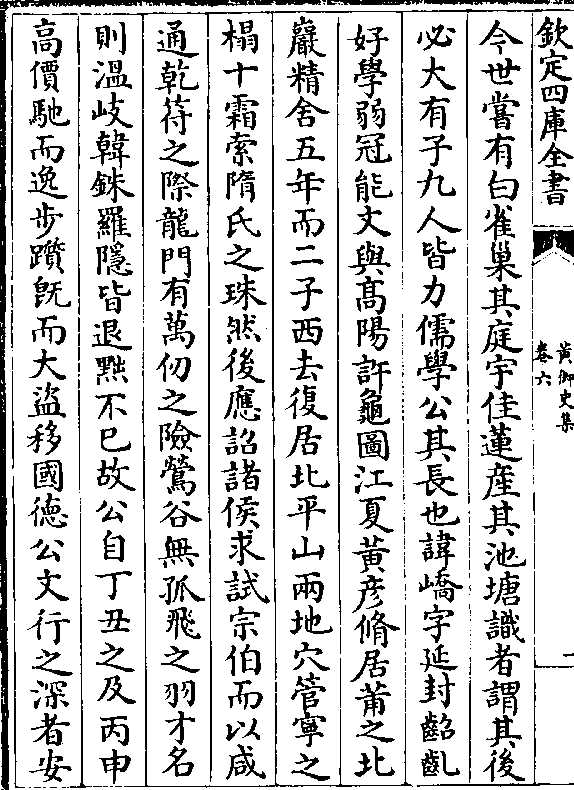 欽定四庫全書
黃御史集
卷六
一
今世嘗有白雀巢其庭宇佳蓮産其池塘識者謂其後
必大有子九人皆力儒學公其長也諱嶠字延封齠齓
好學弱冠能文與髙陽許龜圖江夏黃彦脩居莆之北
巖精舍五年而二子西去復居北平山兩地穴管寧之
榻十霜索隋氏之珠然後應詔諸侯求試宗伯而以咸
通乾符之際龍門有萬仞之險鶯谷無孤飛之羽才名
則溫岐韓銖羅隱皆退黜不已故公自丁丑之及丙申
高價馳而逸步躓旣而大盜移國德公文行之深者安